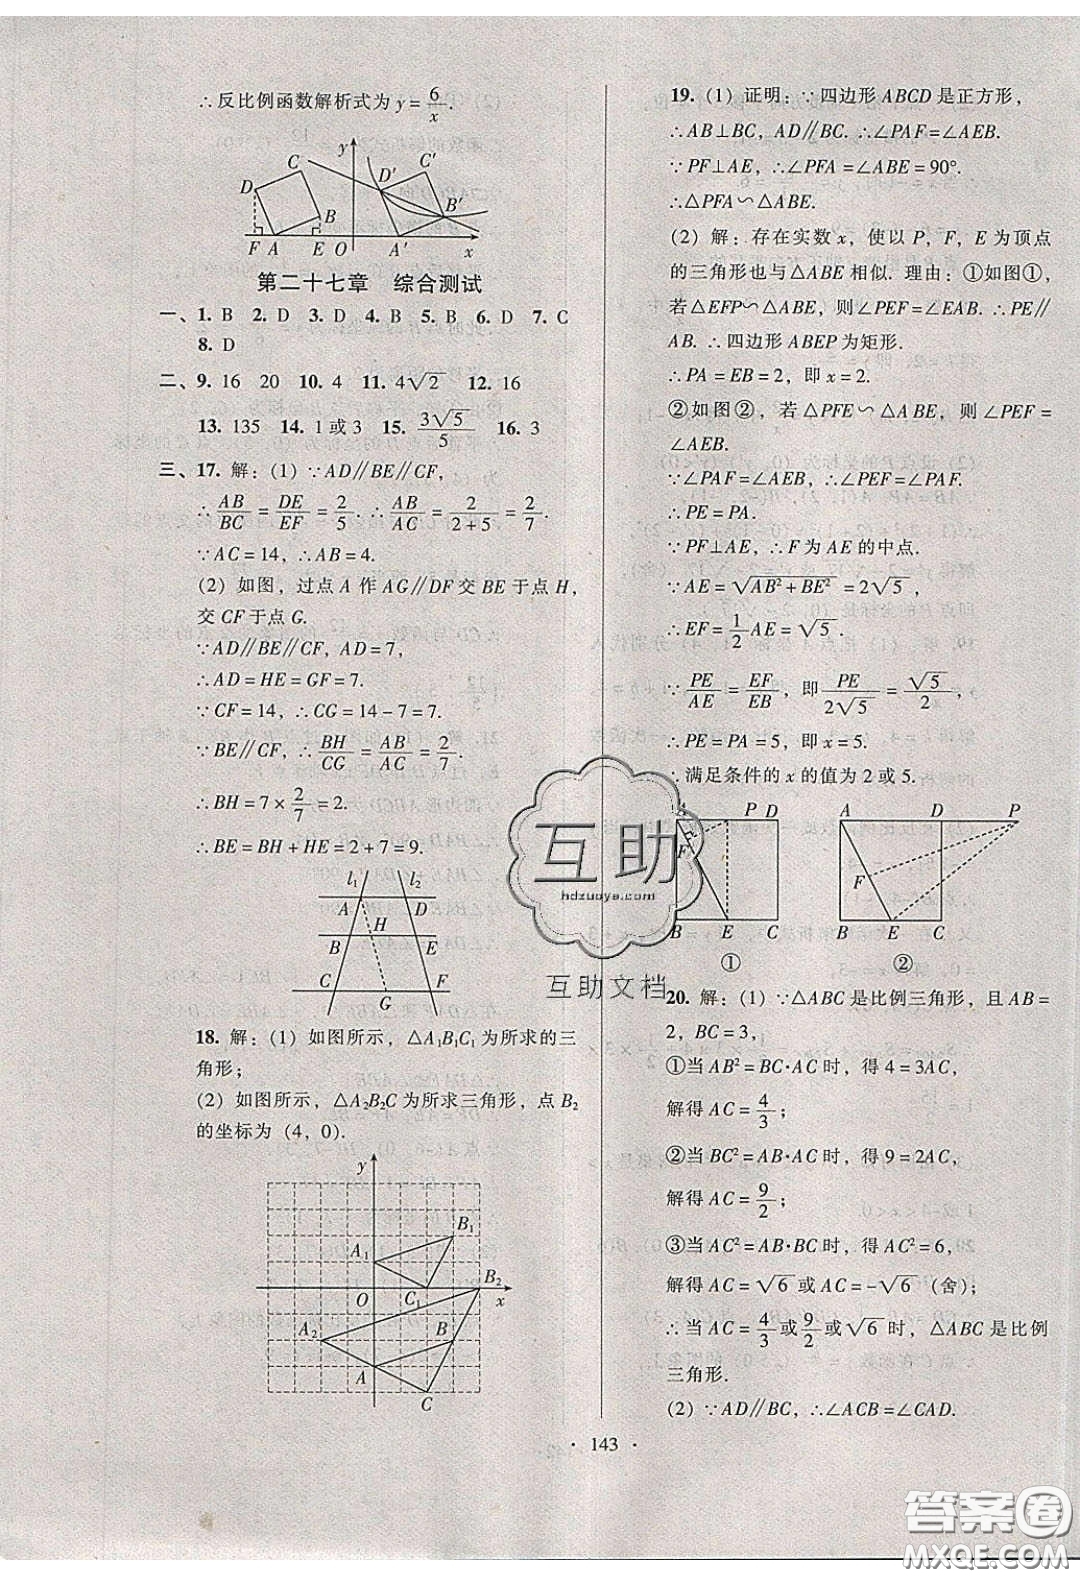 ∴反比例函数解析式为 y = 6/x.
y
C
D
D′
C′
B
B′
F A E O A′ x
第二十七章 综合测试
一、1. B 2. D 3. D 4. B 5. B 6. D 7. C
8. D
二、9. 16 20 10. 4 11. 4√2 12. 16
13. 135 14. 1或3 15. 3√5/5 16. 3
三、17. 解：(1) ∵AD∥BE∥CF，
∴AB/BC = DE/EF = 2/5. ∴AB/AC = 2/(2+5) = 2/7.
∵AC = 14，∴AB = 4.
(2) 如图，过点 A 作 AG∥DF 交 BE 于点 H，
交 CF 于点 G.
∵AD∥BE∥CF，AD = 7，
∴AD = HE = GF = 7.
∵CF = 14，∴CG = 14 - 7 = 7.
∵BE∥CF，∴BH/CG = AB/AC = 2/7.
∴BH = 7 × 2/7 = 2.
∴BE = BH + HE = 2 + 7 = 9.
l₁ l₂
A D
H
B E
C F
G
18. 解：(1) 如图所示，△A₁B₁C₁ 为所求的三
角形；
(2) 如图所示，△A₂B₂C 为所求三角形，点 B₂
的坐标为 (4，0).
y
B₁
A₁
B₂
O C₁ x
A₂ B
A
C
19. (1) 证明：∵四边形 ABCD 是正方形，
∴AB⊥BC，AD∥BC. ∴∠PAF = ∠AEB.
∵PF⊥AE，∴∠PFA = ∠ABE = 90°.
∴△PFA∽△ABE.
(2) 解：存在实数 x，使以 P，F，E 为顶点
的三角形也与△ABE 相似. 理由：①如图①，
若△EFP∽△ABE，则∠PEF = ∠EAB. ∴PE∥
AB. ∴四边形 ABEP 为矩形.
∴PA = EB = 2，即 x = 2.
②如图②，若△PFE∽△ABE，则∠PEF =
∠AEB.
∵∠PAF = ∠AEB，∴∠PEF = ∠PAF.
∴PE = PA.
∵PF⊥AE，∴F 为 AE 的中点.
∵AE = √(AB² + BE²) = 2√5，
∴EF = 1/2 AE = √5.
∵PE/AE = EF/EB，即 PE/2√5 = √5/2，
∴PE = PA = 5，即 x = 5.
∴满足条件的 x 的值为 2 或 5.
A P D
F
B E C
①
A D P
F
B E C
②
20. 解：(1) ∵△ABC 是比例三角形，且 AB =
2，BC = 3，
①当 AB² = BC·AC 时，得 4 = 3AC，
解得 AC = 4/3；
②当 BC² = AB·AC 时，得 9 = 2AC，
解得 AC = 9/2；
③当 AC² = AB·BC 时，得 AC² = 6，
解得 AC = √6 或 AC = -√6 (舍)；
∴当 AC = 4/3 或 9/2 或 √6 时，△ABC 是比例
三角形.
(2) ∵AD∥BC，∴∠ACB = ∠CAD.
· 143 ·
互助
hdzuoye.com
互助文档
答案圈
MXQE.COM